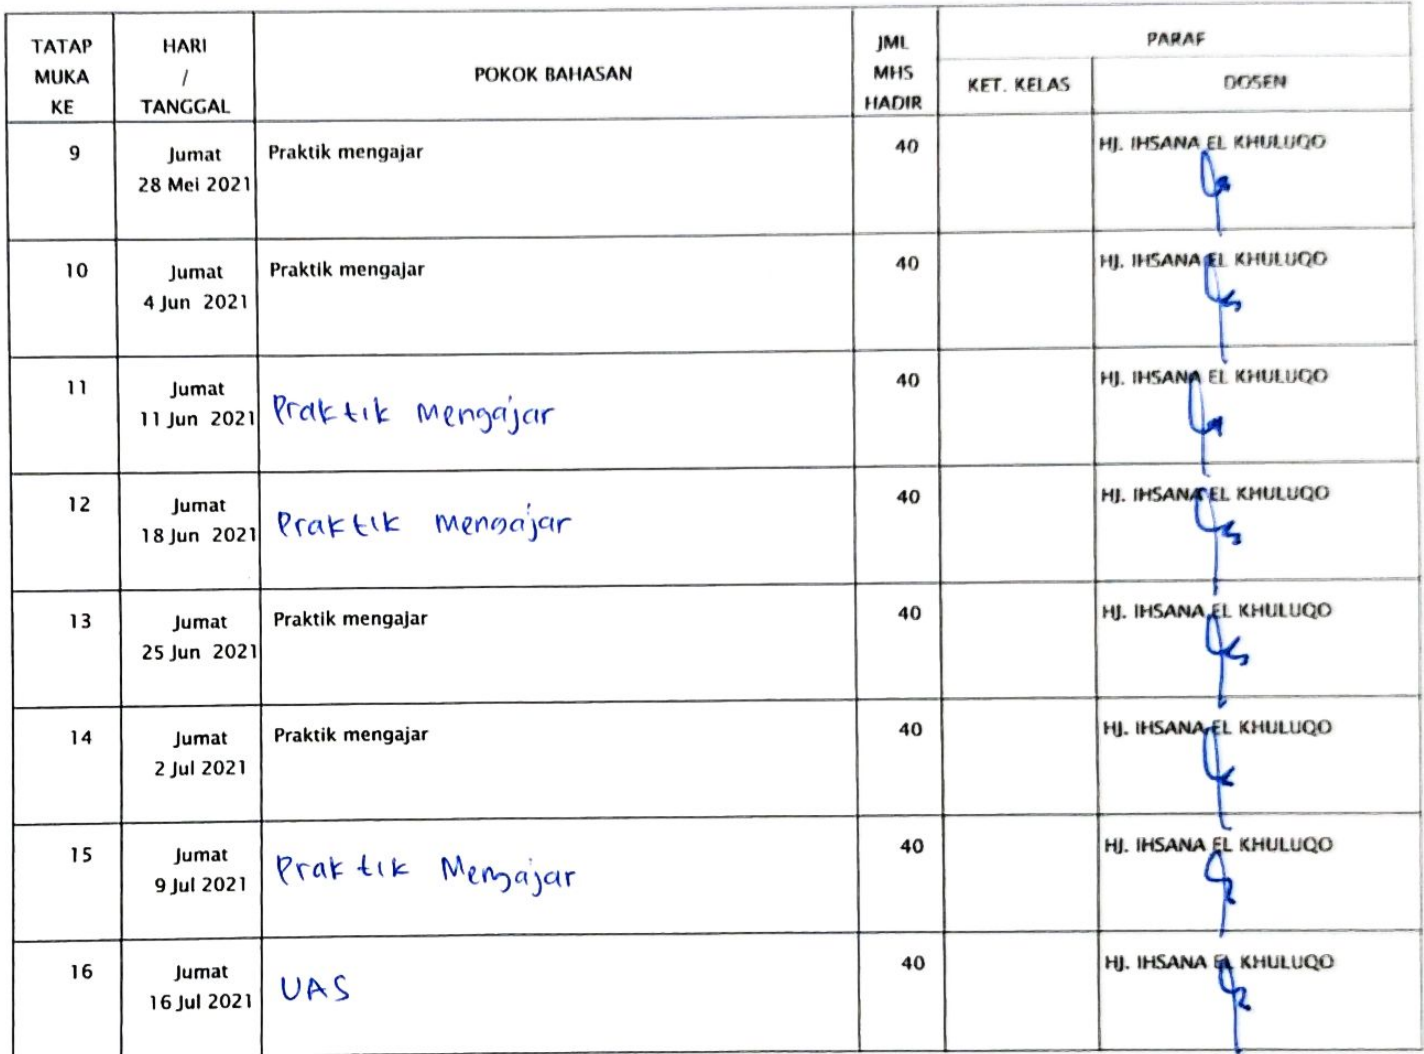 TATAP MUKA KE
HARI / TANGGAL
POKOK BAHASAN
JML MHS HADIR
PARAF
KET. KELAS
DOSEN
9
Jumat
28 Mei 2021
Praktik mengajar
40
HJ. IHSANA EL KHULUQO
10
Jumat
4 Jun 2021
Praktik mengajar
40
HJ. IHSANA EL KHULUQO
11
Jumat
11 Jun 2021
Praktik Mengajar
40
HJ. IHSANA EL KHULUQO
12
Jumat
18 Jun 2021
Praktik mengajar
40
HJ. IHSANA EL KHULUQO
13
Jumat
25 Jun 2021
Praktik mengajar
40
HJ. IHSANA EL KHULUQO
14
Jumat
2 Jul 2021
Praktik mengajar
40
HJ. IHSANA EL KHULUQO
15
Jumat
9 Jul 2021
Praktik Mengajar
40
HJ. IHSANA EL KHULUQO
16
Jumat
16 Jul 2021
UAS
40
HJ. IHSANA EL KHULUQO